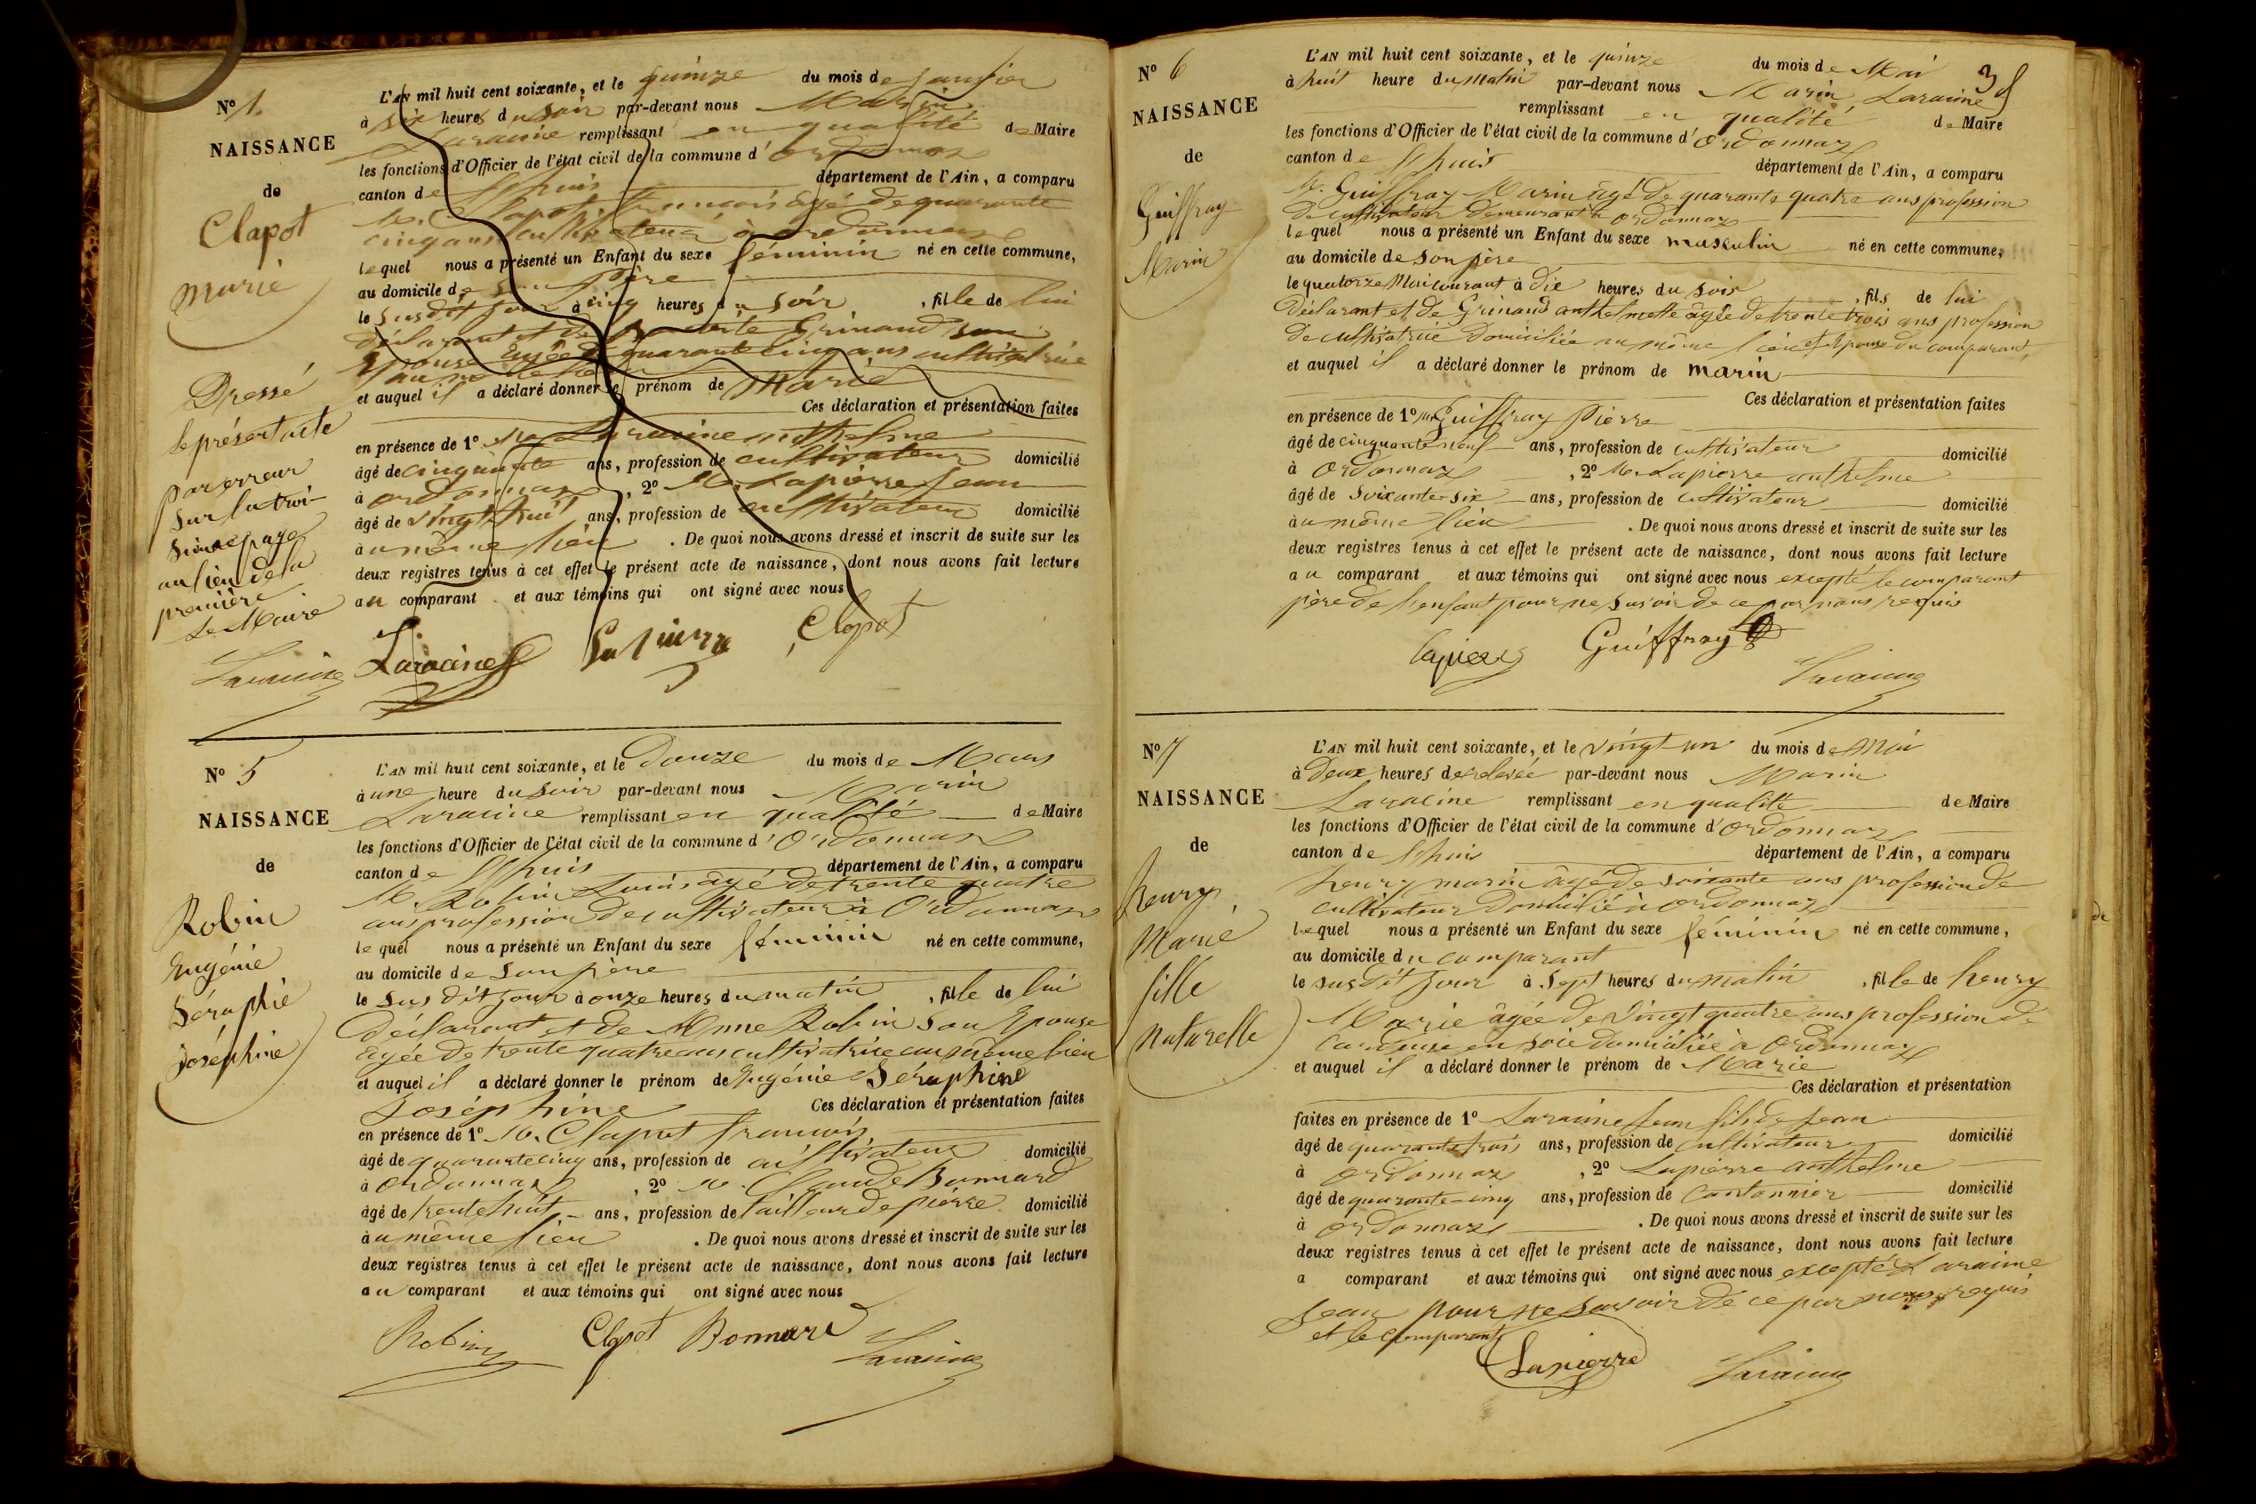 N° 1.
NAISSANCE
de
Clapot
Marie
Dressé
le présent acte
par erreur
sur la troi-
sième page
au lieu de la
première
Le Maire
Laracine
L'AN mil huit cent soixante, et le quinze du mois de Janvier
à six heures du soir par-devant nous Marin
Laracine remplissant en qualité de Maire
les fonctions d'Officier de l'état civil de la commune d'Ordonnaz
canton de Lhuis département de l'Ain, a comparu
M. Clapot François âgé de quarante
cinq ans cultivateur à ordonnaz
lequel nous a présenté un Enfant du sexe féminin né en cette commune,
au domicile de son Père
le susdit jour à cinq heures du soir, fille de lui
déclarant et de Grinand son
Epouse âgée de quarante cinq ans cultivatrice
au même lieu
et auquel il a déclaré donner le prénom de Marie
Ces déclaration et présentation faites
en présence de 1° M. Laracine anthelme
âgé de cinquante ans, profession de cultivateur domicilié
à ordonnaz, 2° M. Lapierre Jean
âgé de vingt huit ans, profession de cultivateur domicilié
au même lieu. De quoi nous avons dressé et inscrit de suite sur les
deux registres tenus à cet effet le présent acte de naissance, dont nous avons fait lecture
au comparant et aux témoins qui ont signé avec nous
Laracine Lapierre Clapot
N° 5
NAISSANCE
de
Robin
Eugénie
Séraphie
Joséphine
L'AN mil huit cent soixante, et le Douze du mois de Mars
à une heure du soir par-devant nous Marin
Laracine remplissant en qualité de Maire
les fonctions d'Officier de l'état civil de la commune d'Ordonnaz
canton de Lhuis département de l'Ain, a comparu
M. Robin Louis âgé de trente quatre
ans profession de cultivateur à Ordonnaz
lequel nous a présenté un Enfant du sexe féminin né en cette commune,
au domicile de son père
le susdit jour à onze heures du matin, fille de lui
déclarant et de Anne Robin son Epouse
âgée de trente quatre ans cultivatrice au même lieu
et auquel il a déclaré donner le prénom de Eugénie Séraphine
Joséphine Ces déclaration et présentation faites
en présence de 1° M. Clapot françois
âgé de quarante cinq ans, profession de cultivateur domicilié
à Ordonnaz, 2° M. Claude Bonnard
âgé de trente huit ans, profession de tailleur de pierre domicilié
au même lieu. De quoi nous avons dressé et inscrit de suite sur les
deux registres tenus à cet effet le présent acte de naissance, dont nous avons fait lecture
au comparant et aux témoins qui ont signé avec nous
Robin Clapot Bonnard Laracine
N° 6
NAISSANCE
de
Guiffray
Marin
L'AN mil huit cent soixante, et le quinze du mois de Mai
à huit heure du matin par-devant nous Marin Laracine
remplissant en qualité de Maire
les fonctions d'Officier de l'état civil de la commune d'Ordonnaz
canton de Lhuis département de l'Ain, a comparu
M. Guiffray Marin âgé de quarante quatre ans profession
de cultivateur demeurant à ordonnaz
lequel nous a présenté un Enfant du sexe masculin né en cette commune,
au domicile de son père
le quatorze Mai courant à dix heures du soir, fils de lui
Déclarant et de Grinand anthelmette âgée de trente trois ans profession
de cultivatrice domiciliée au même lieu et Epouse du comparant,
et auquel il a déclaré donner le prénom de marin
Ces déclaration et présentation faites
en présence de 1° M. Guiffray Pierre
âgé de cinquante neuf ans, profession de cultivateur domicilié
à Ordonnaz, 2° M. Lapierre anthelme
âgé de soixante six ans, profession de cultivateur domicilié
au même lieu. De quoi nous avons dressé et inscrit de suite sur les
deux registres tenus à cet effet le présent acte de naissance, dont nous avons fait lecture
au comparant et aux témoins qui ont signé avec nous excepté le comparant
père de l'enfant pour ne savoir de ce par nous requis
Lapierre Guiffray Laracine
N° 7
NAISSANCE
de
henry
Marie
fille
naturelle
L'AN mil huit cent soixante, et le vingt un du mois de Mai
à Deux heures de relevée par-devant nous Marin
Laracine remplissant en qualité de Maire
les fonctions d'Officier de l'état civil de la commune d'Ordonnaz
canton de Lhuis département de l'Ain, a comparu
henry marin âgé de soixante ans profession de
cultivateur Domicilié à ordonnaz
lequel nous a présenté un Enfant du sexe féminin né en cette commune,
au domicile du comparant
le susdit jour à sept heures du matin, fille de henry
Marie âgée de vingt quatre ans profession de
en soie domiciliée à Ordonnaz
et auquel il a déclaré donner le prénom de Marie
Ces déclaration et présentation
faites en présence de 1° Laracine Jean fils de Jean
âgé de quarante trois ans, profession de cultivateur domicilié
à ordonnaz, 2° Lapierre anthelme
âgé de quarante cinq ans, profession de Cantonnier domicilié
à ordonnaz. De quoi nous avons dressé et inscrit de suite sur les
deux registres tenus à cet effet le présent acte de naissance, dont nous avons fait lecture
a comparant et aux témoins qui ont signé avec nous excepté Laracine
Jean pour ne savoir de ce par nous requis
et le comparant
Lapierre Laracine